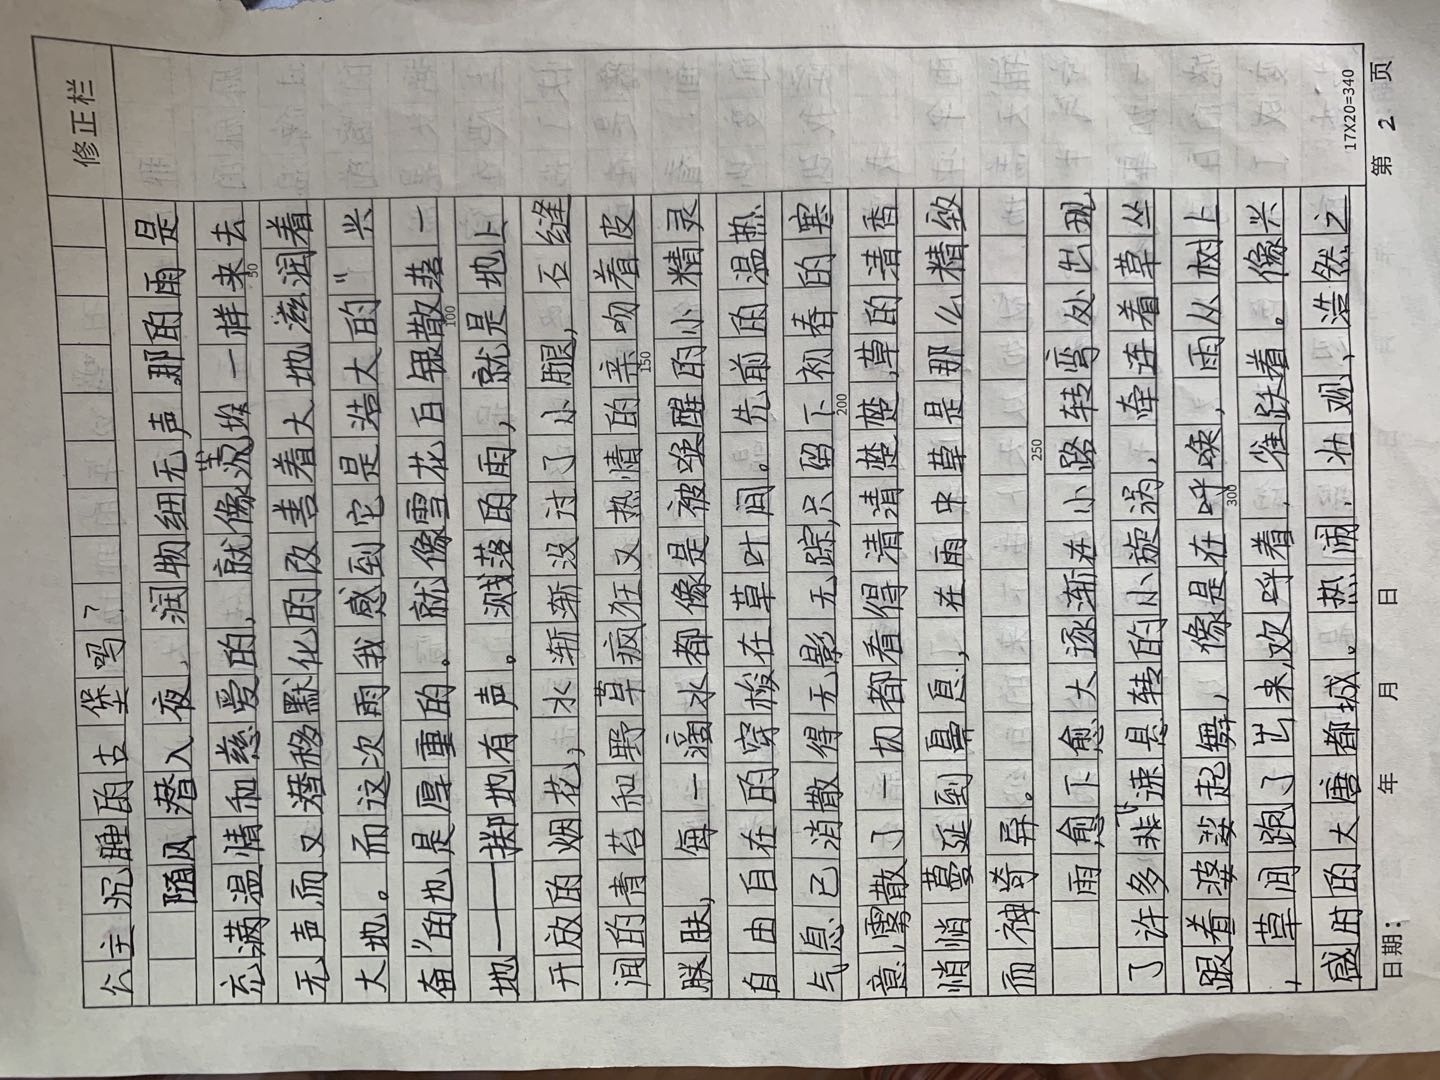 修正栏
公主沉睡的古堡吗？
陌风潜入夜，润物细无声。那的雨是
充满温情和慈爱的，就像苏埃一样来去
无声而又潜移默化的改善着大地滋润着
大地。而这次雨我感到它是浩大的“兴
奋”的也是厚重的。就像雪花白银散落一
地——掷地有声。溅落的雨，就是地上
开放的烟花，水渐渐没过了小腿，石缝
间的青苔和野草疯狂又热情的亲吻着皮
肤，每一滴水都像是被唤醒的小精灵
自由自在的穿梭在草叶间。先前的温热
气息已消散得无影无踪，只留下初春的寒
意，雾散了一切都看得清清楚楚，草的清香
悄悄蔓延到鼻息，在雨中草是那么精致
而神奇异。
雨愈下愈大逐渐在小路转弯处出现
了许多飞速悬转的小漩涡，牵连着草丛
跟着婆娑起舞，像是在呼唤，雨从树上
，草间跑了出来，欢呼着，雀跃着。像兴
盛时的大唐都城。热闹，壮观，浩然之
50
100
150
200
250
300
17X20=340
日期：  年  月  日  第 2 页